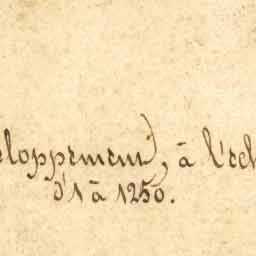 eloppement), à l'éch
d'1 à 1250.